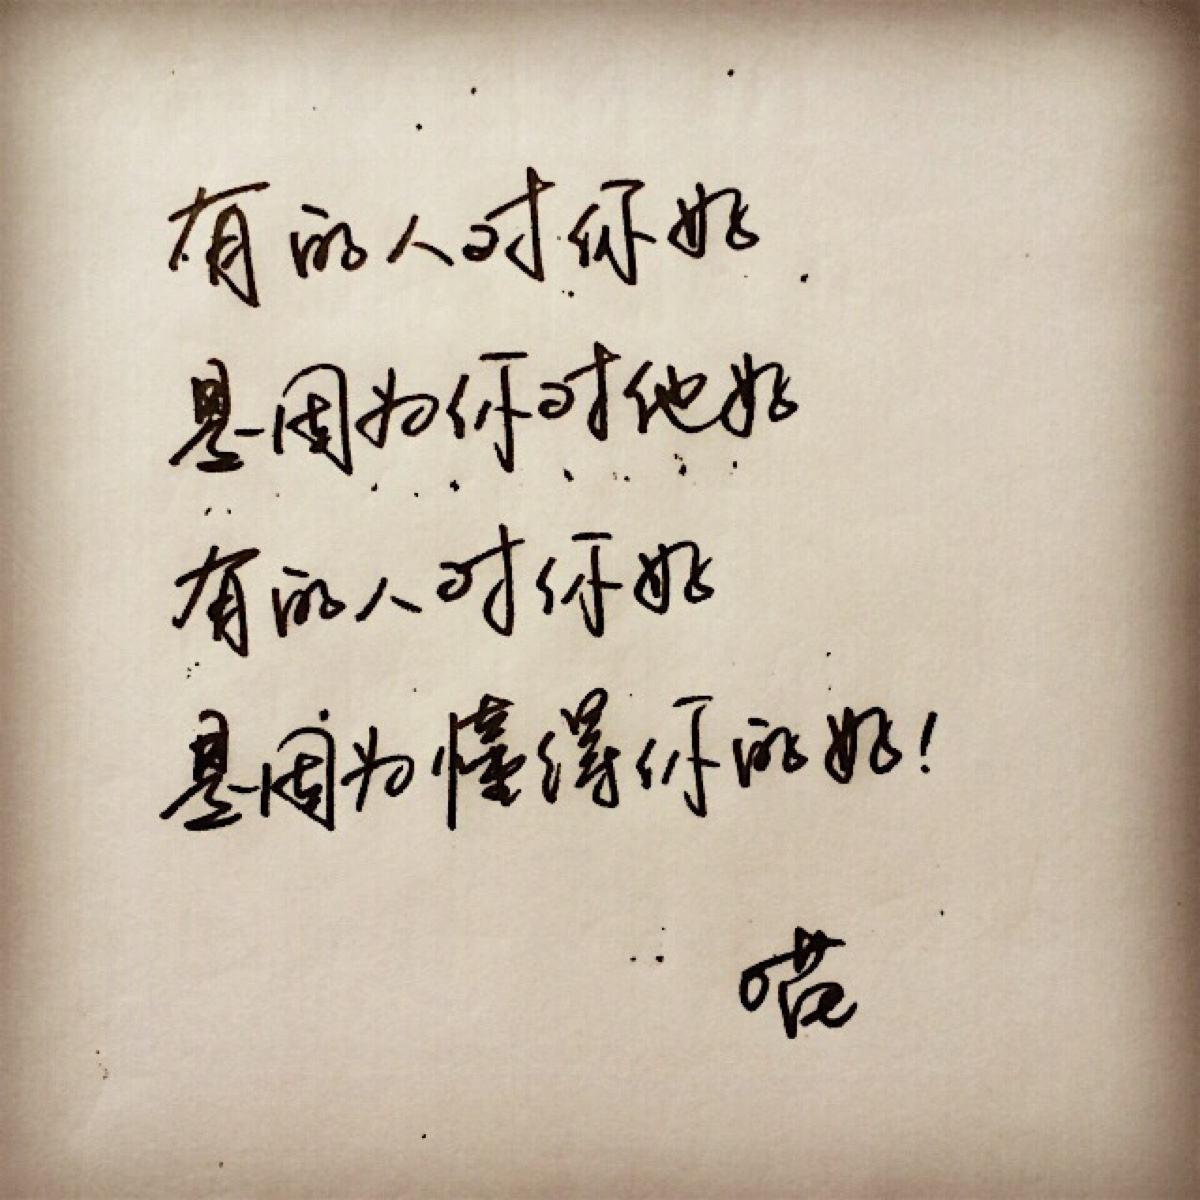 有的人对你好
是因为你对他好
有的人对你好
是因为懂得你的好！
喵